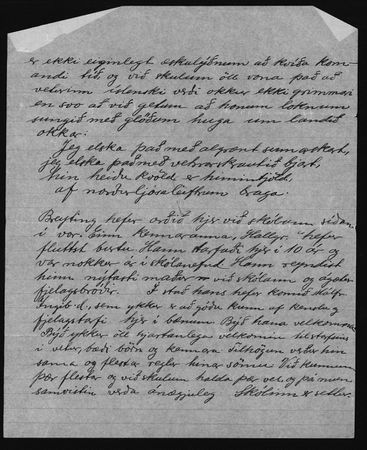 er ekki eiginlegt æskulýðnum að kvíða kom-
andi tíð, og við skulum öll vona það að
veturinn íslenski verði okkur ekki grimmari
en svo að við getum að honum loknum
sungið með glöðum huga um landið
okkar:
Jeg elska það með algrænt sumarskart,
jeg elska það með vetrarskrautið bjart,
hin heiðu kvöld er himintjöld
af norðurljósaleiftrum braga.
Breyting hefir orðið hjer við skólann síðan
í vor. Einn kennaranna, Hallgr. hefir
flutst burtu. Hann starfaði hjer í 10 ár og
var nokkur ár í skólanefnd. Hann reyndist
hinn nýtasti maður við skólann og ágætur
fjelagsbróðir. Í stað hans hefir komið
sem ykkur er að góðu kunn af kenslu og
fjelagsstarfi hjer í bænum. Býð hana velkomna.
Býð ykkur öll hjartanlega velkomin til starfsins
í vetur, bæði börn og kennara. Tilhögun verður hin
sama og flestar reglur hinar sömu. Við kunnum
þær flestar og við skulum halda þær vel og þá mun
samvistin verða ánægjuleg. Skólinn er settur.